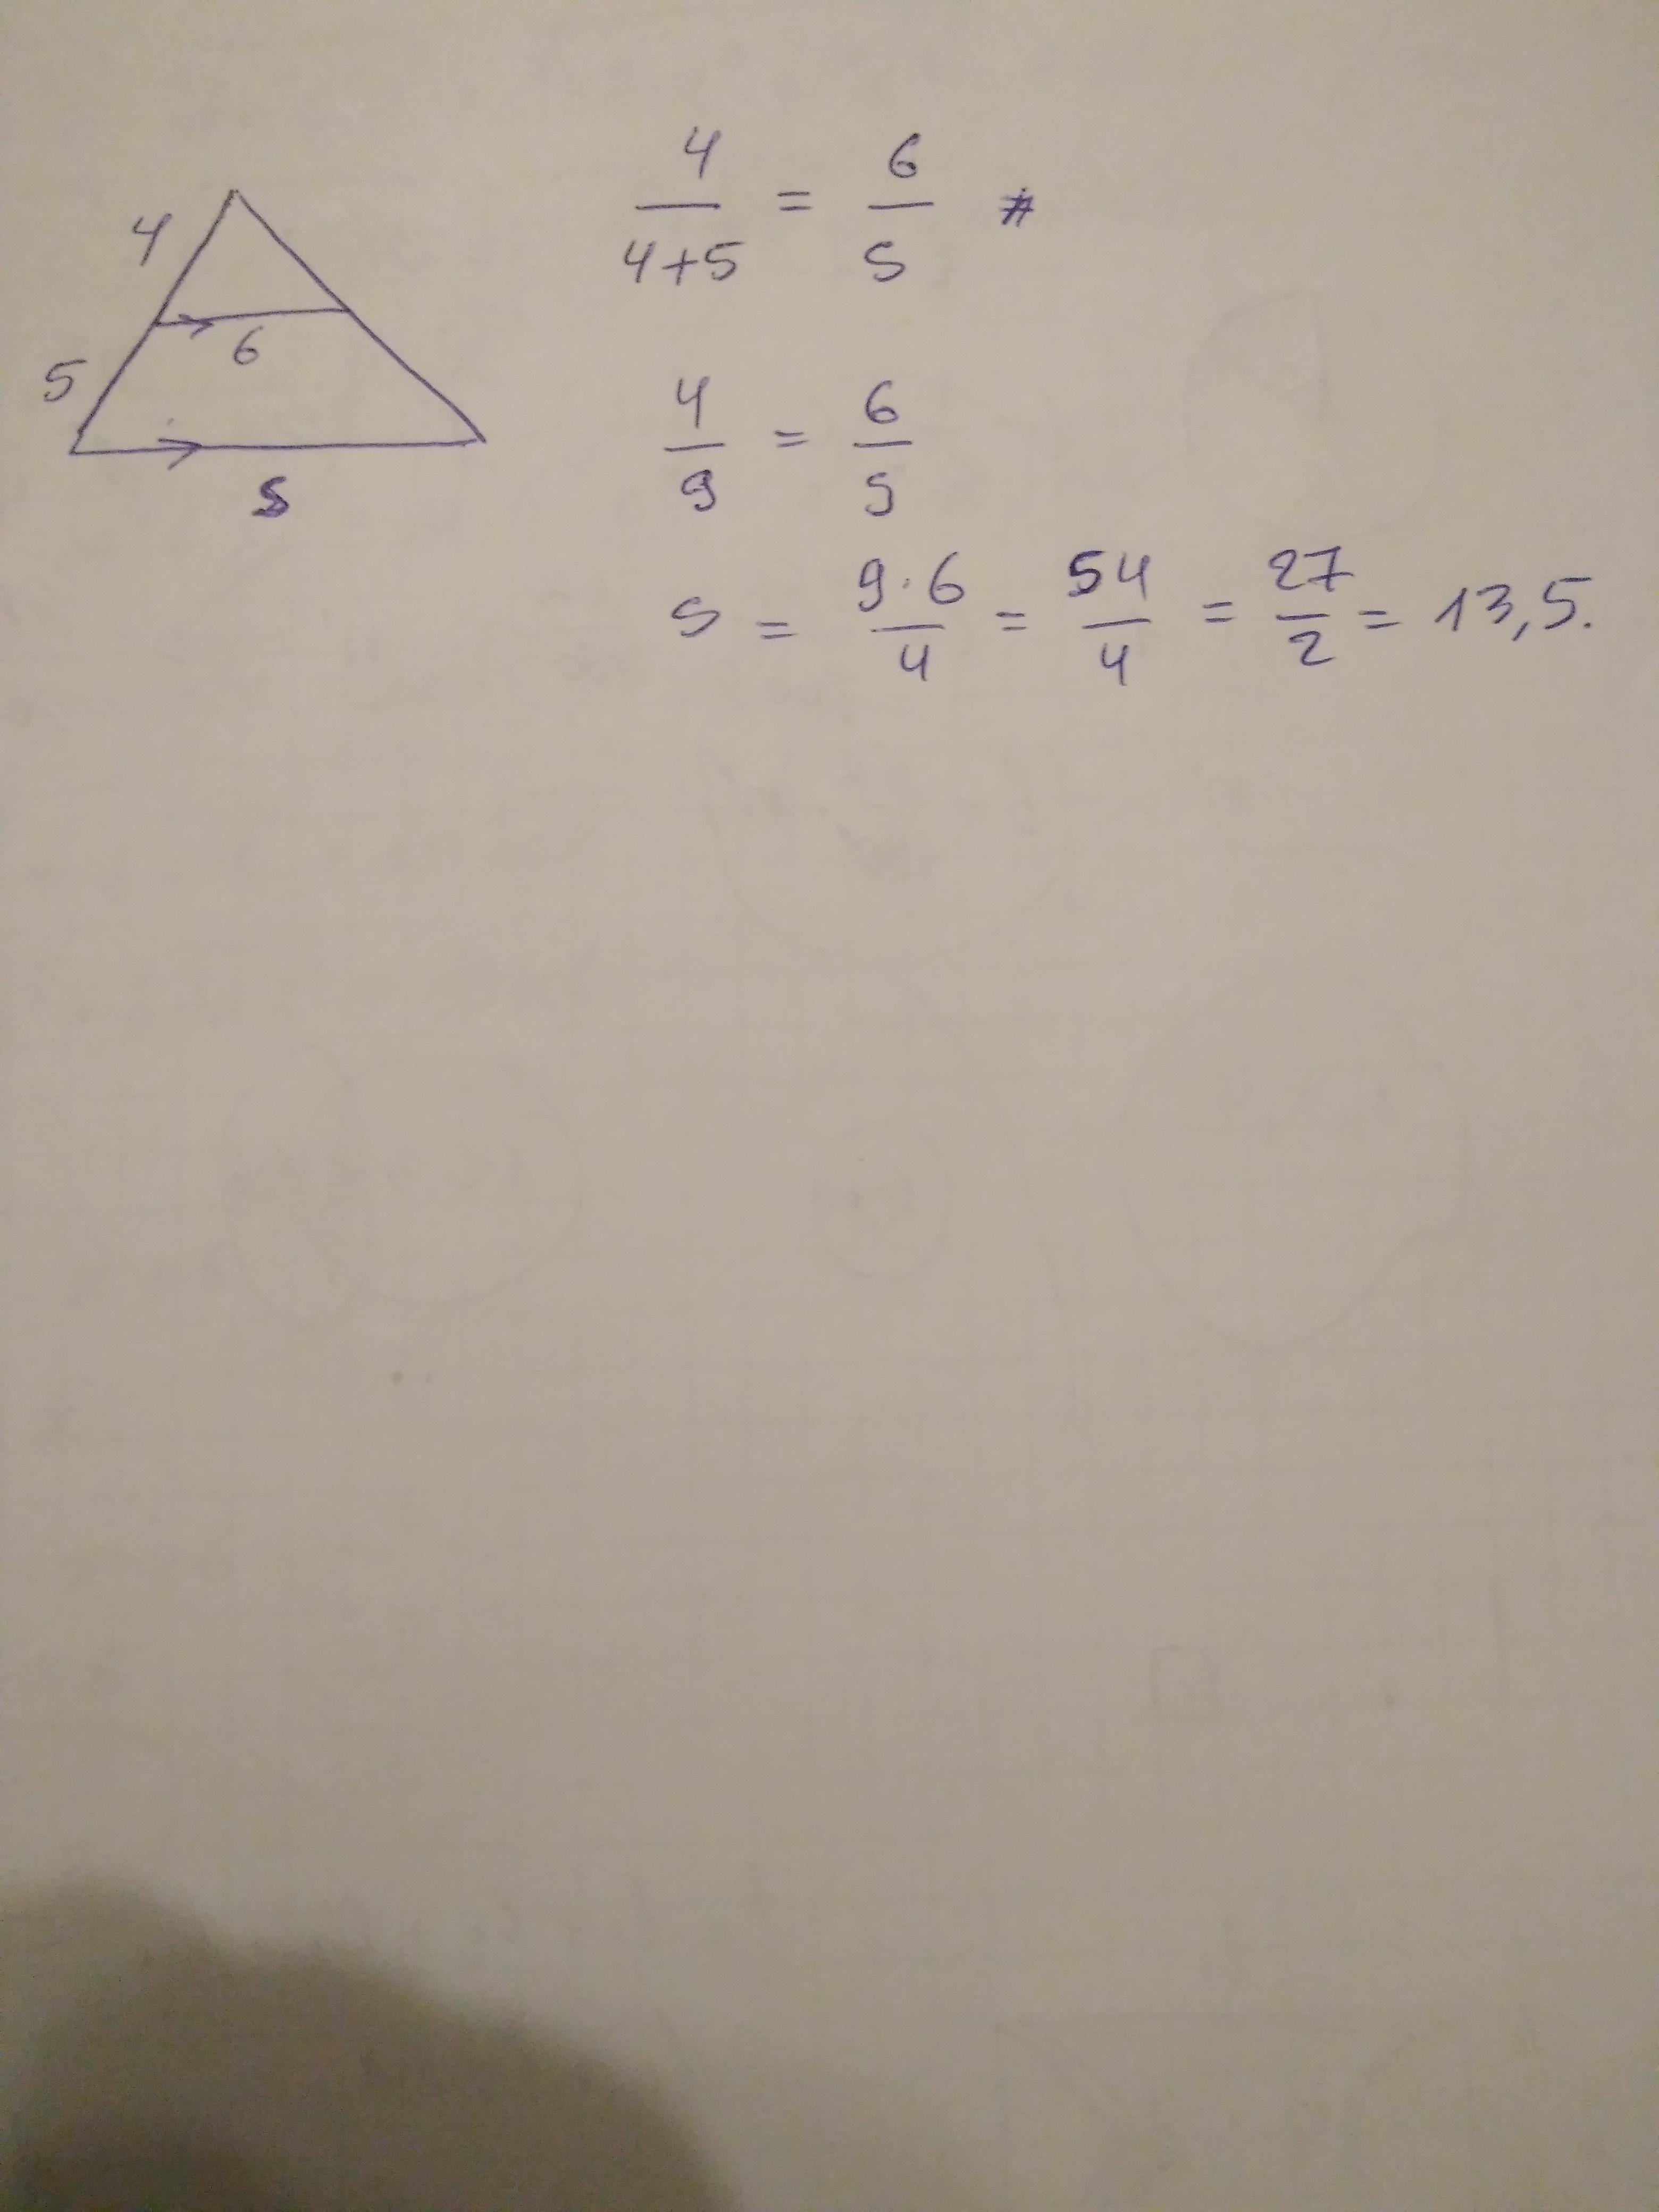 4
5
6
s
4/(4+5) = 6/s
4/9 = 6/s
s = 9·6/4 = 54/4 = 27/2 = 13,5.